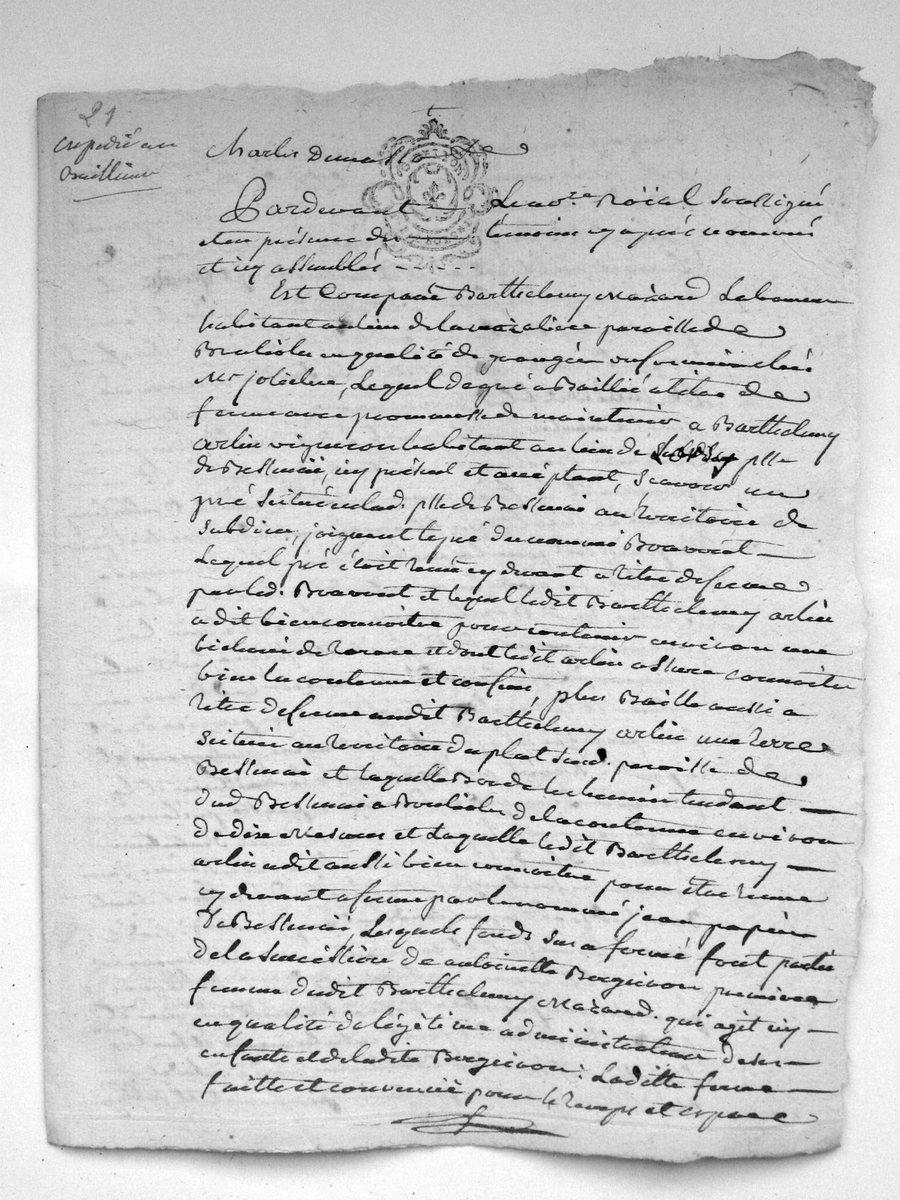 21
expedié au
Charles
Pardevant Le no.re Roïal Soussigné
et en présence des témoins cy aprés nommés
et cy assemblés
Est Comparu Barthelemy Mazard Laboureur
habitant au lieu de la paroisse de
en qualité de granger ou fermier chés
Mr jolicleur, Lequel de gré a Baillié a titre de
ferme avec promesse de maintenir a Barthelemy
arlin vigneron habitant au lieu de psse
de Bessenai, cy présent et acceptant, Scavoir un
pré Scitué en lad. psse de Bessenai au territoire de
Subdine, joignant le pré du nommé Bravoirt
Lequel pré étoit tenu cy devant a titre de ferme
par led. Bravoirt et lequel ledit Barthelemy arlin
a dit bien connoitre pour contenir environ une
bicherée de terre et dont ledit arlin a
bien la contenue et confins, plus Baille aussi a
titre de ferme audit Barthelemy arlin une terre
Scituée au territoire du plat Sur d. paroisse de
Bessenai et laquelle Borde le chemin tendant
dud Bessenai a de la contenue environ
de dix Mesures et Laquelle ledit Barthelemy
arlin a dit aussi bien connoitre pour étre tenue
cy devant a ferme par le nommé jean papin
De Bessenai, Lesquels fonds Sus affermé font partie
de la Succession de antoinette Bergeron premiere
femme dudit Barthelemy Mazard. qui agit cy
en qualité de légitime administrateur de ses
enfants et de ladite Bergeron: Laditte ferme
faitte et convenüe pour le temps et espace